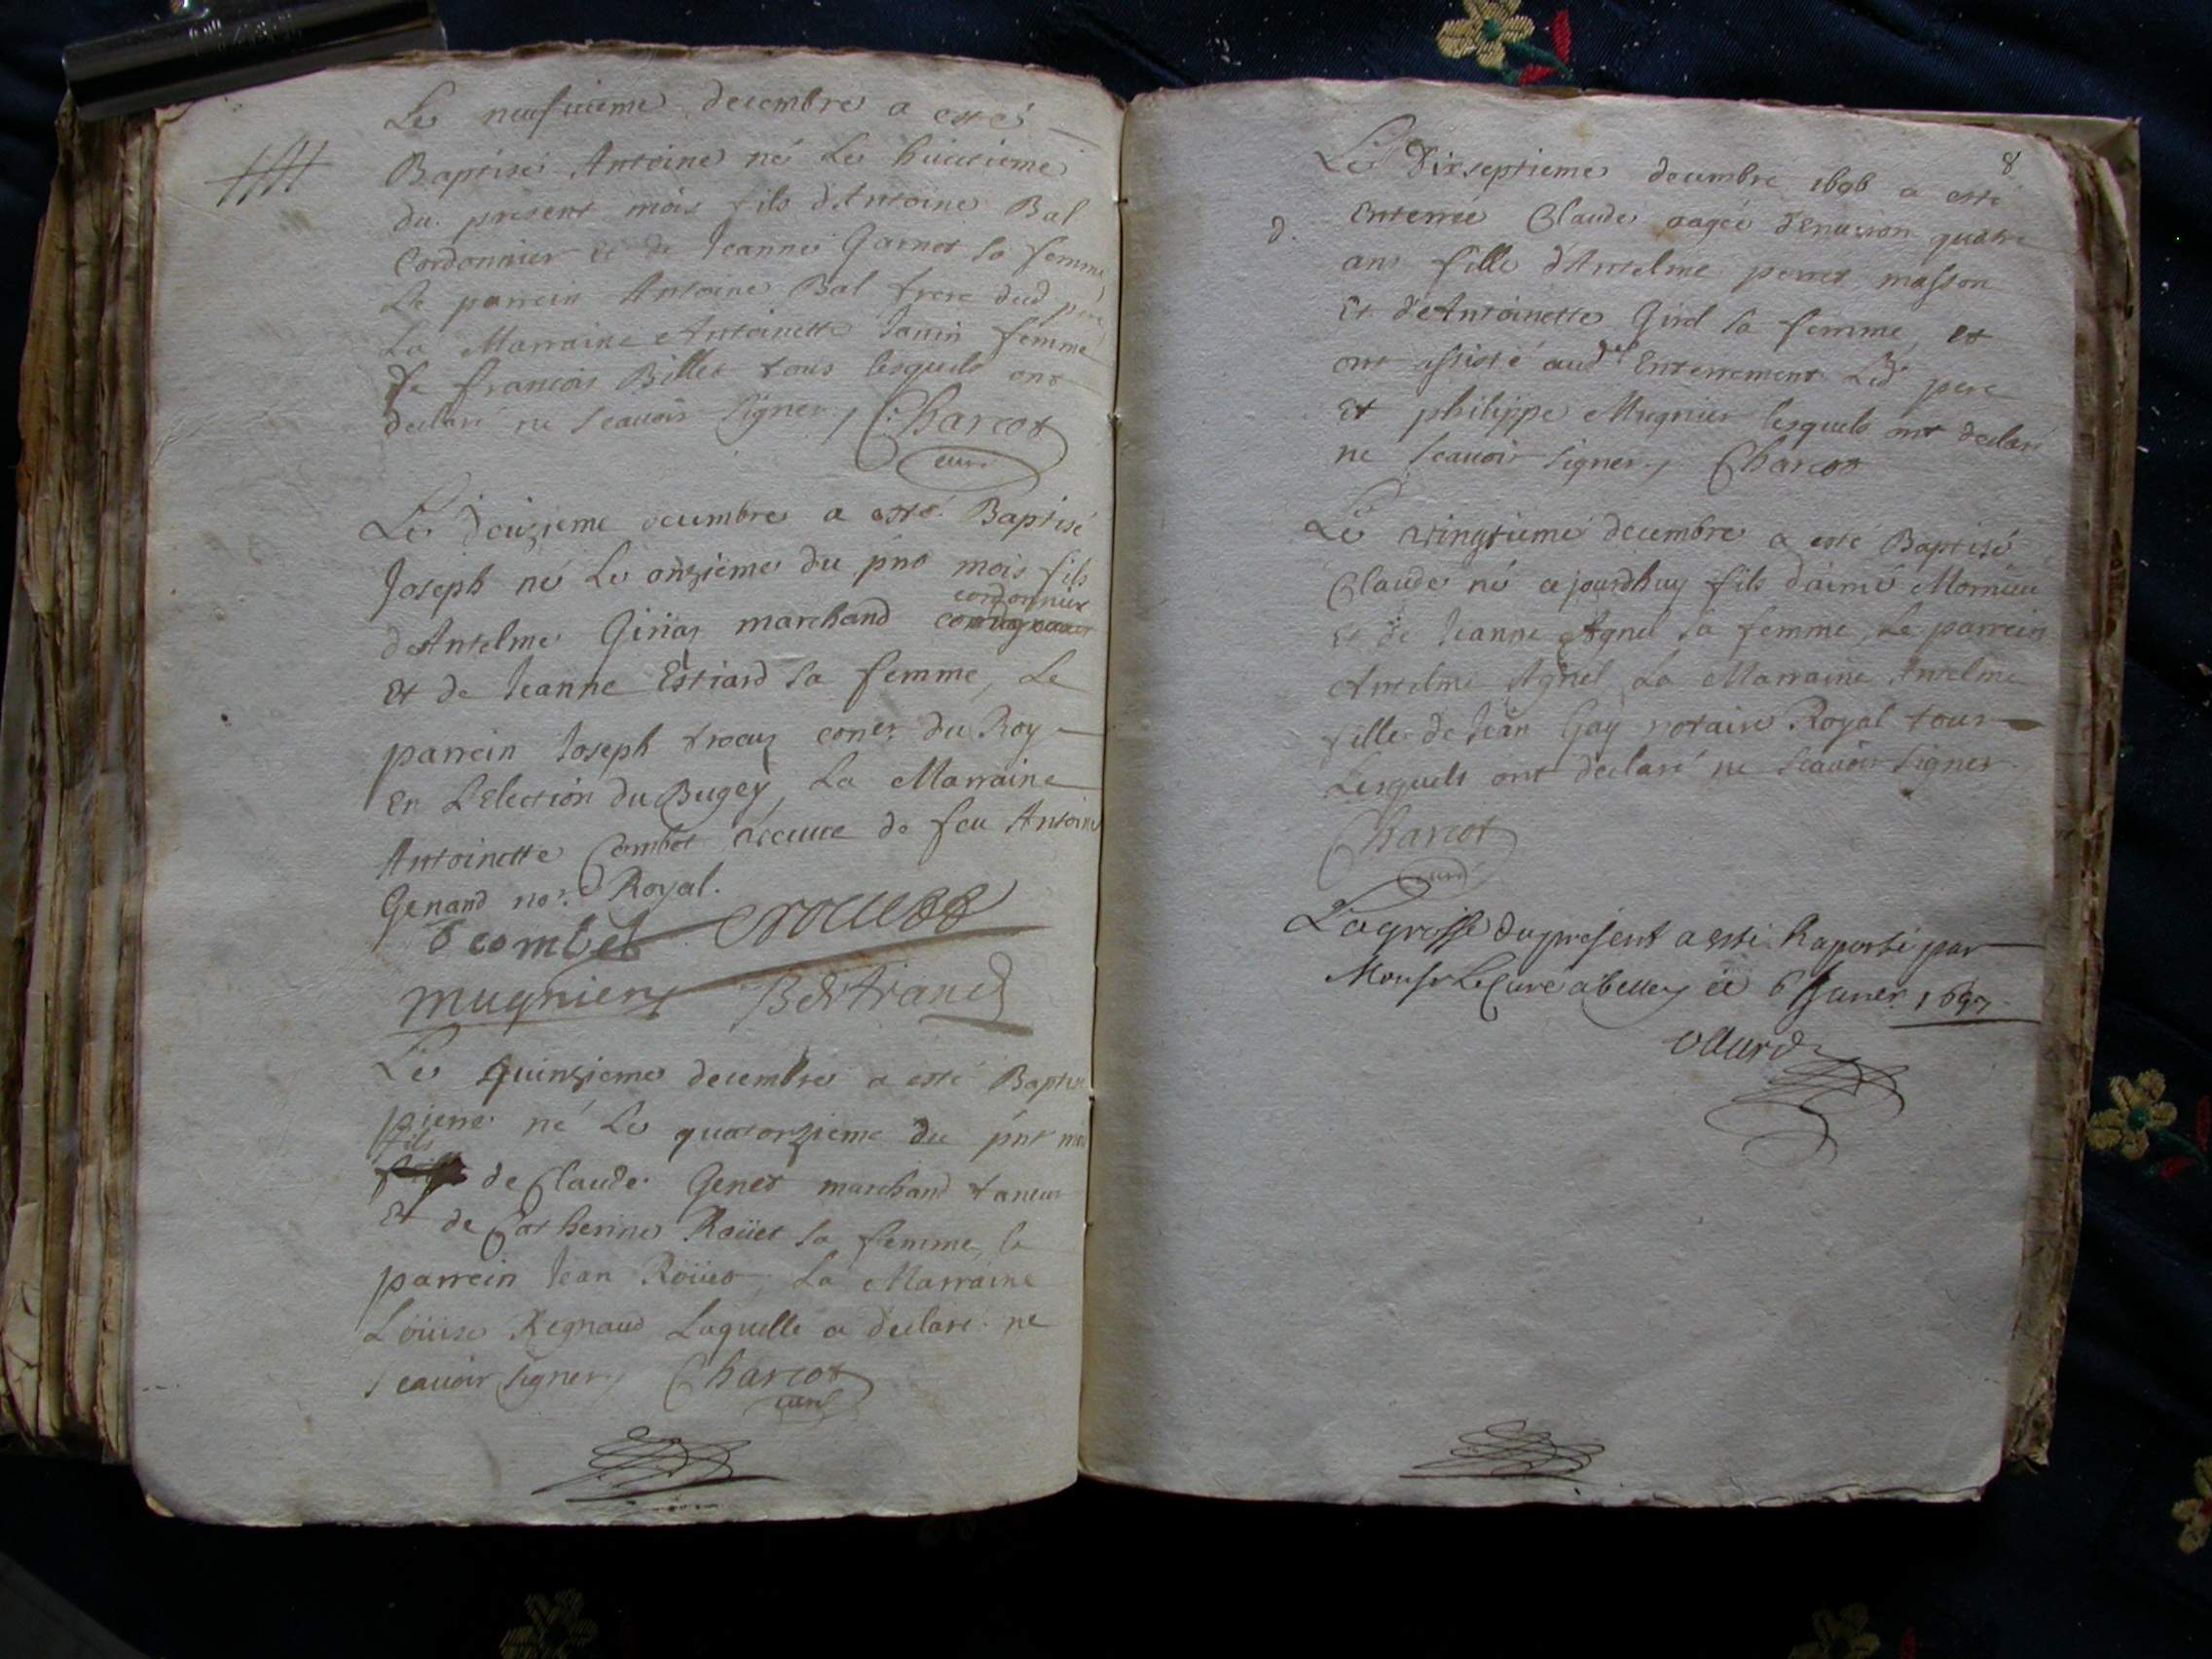 Le neufuieme decembre a esté
Baptisé Antoine né Le huictieme
du present mois fils d'Antoine Bal
Cordonnier et de Jeanne Garnet sa femme
Le parrein Antoine Bal frere dud pere
La Marraine Antoinette Janin femme
de francois Billet tous lesquels ont
declaré ne scauoir signer, Charcot
curé
Le douzieme decembre a esté Baptisé
Joseph né Le onzieme du pnt mois fils
cordonnier
d'Antelme marchand
Et de Jeanne Estiard sa femme, Le
parrein Joseph coner du Roy
En L'Election du Bugey, La Marraine
Antoinette Combet veuue de feu Antoine
Genand nore Royal.
combet
mugnier Bertrand
Le quinzieme decembre a esté Baptisé
pierre né Le quatorzieme du pnt mois
fils
de Claude Genet marchand taneur
Et de Catherine Roüet sa femme, le
parrein Jean Roüet, La Marraine
Loüise Regnaud Laquelle a declaré ne
scauoir signer, Charcot
curé
8
Le Dixseptieme decembre 1696 a esté
d. Enterrée Claude aagée d'Enuiron quatre
ans fille d'Antelme perret masson
Et d'Antoinette Girel sa femme, et
ont assisté aud Enterrement Led pere
Et philippe Mugnier lesquels ont declaré
ne scauoir signer, Charcot
Le vingtieme decembre a esté Baptisé
Claude né ce jourdhuy fils d'aimé Mornieu
Et de Jeanne Agnel sa femme, Le parrein
Antelme Agnel La Marraine Antelme
fille de Jean Gay notaire Royal tous
Lesquels ont declaré ne scauoir signer.
Charcot
curé
La grosse du present a esté Raporté par
Monsr Le Curé a belley ce 6 Januer 1697